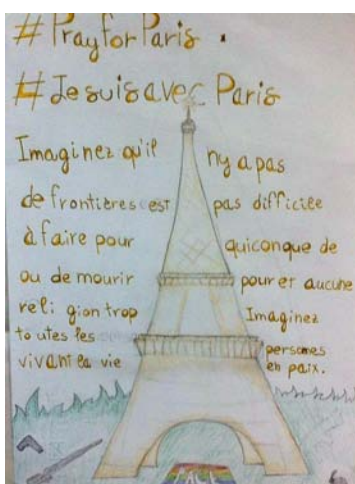 #Pray for Paris .
#Je suis avec Paris
Imaginez qu'il ny a pas
de frontières est pas difficile
à faire pour quiconque de
ou de mourir pour et aucune
reli: gion trop Imaginez
to utes les persones
vivant la vie en paix.